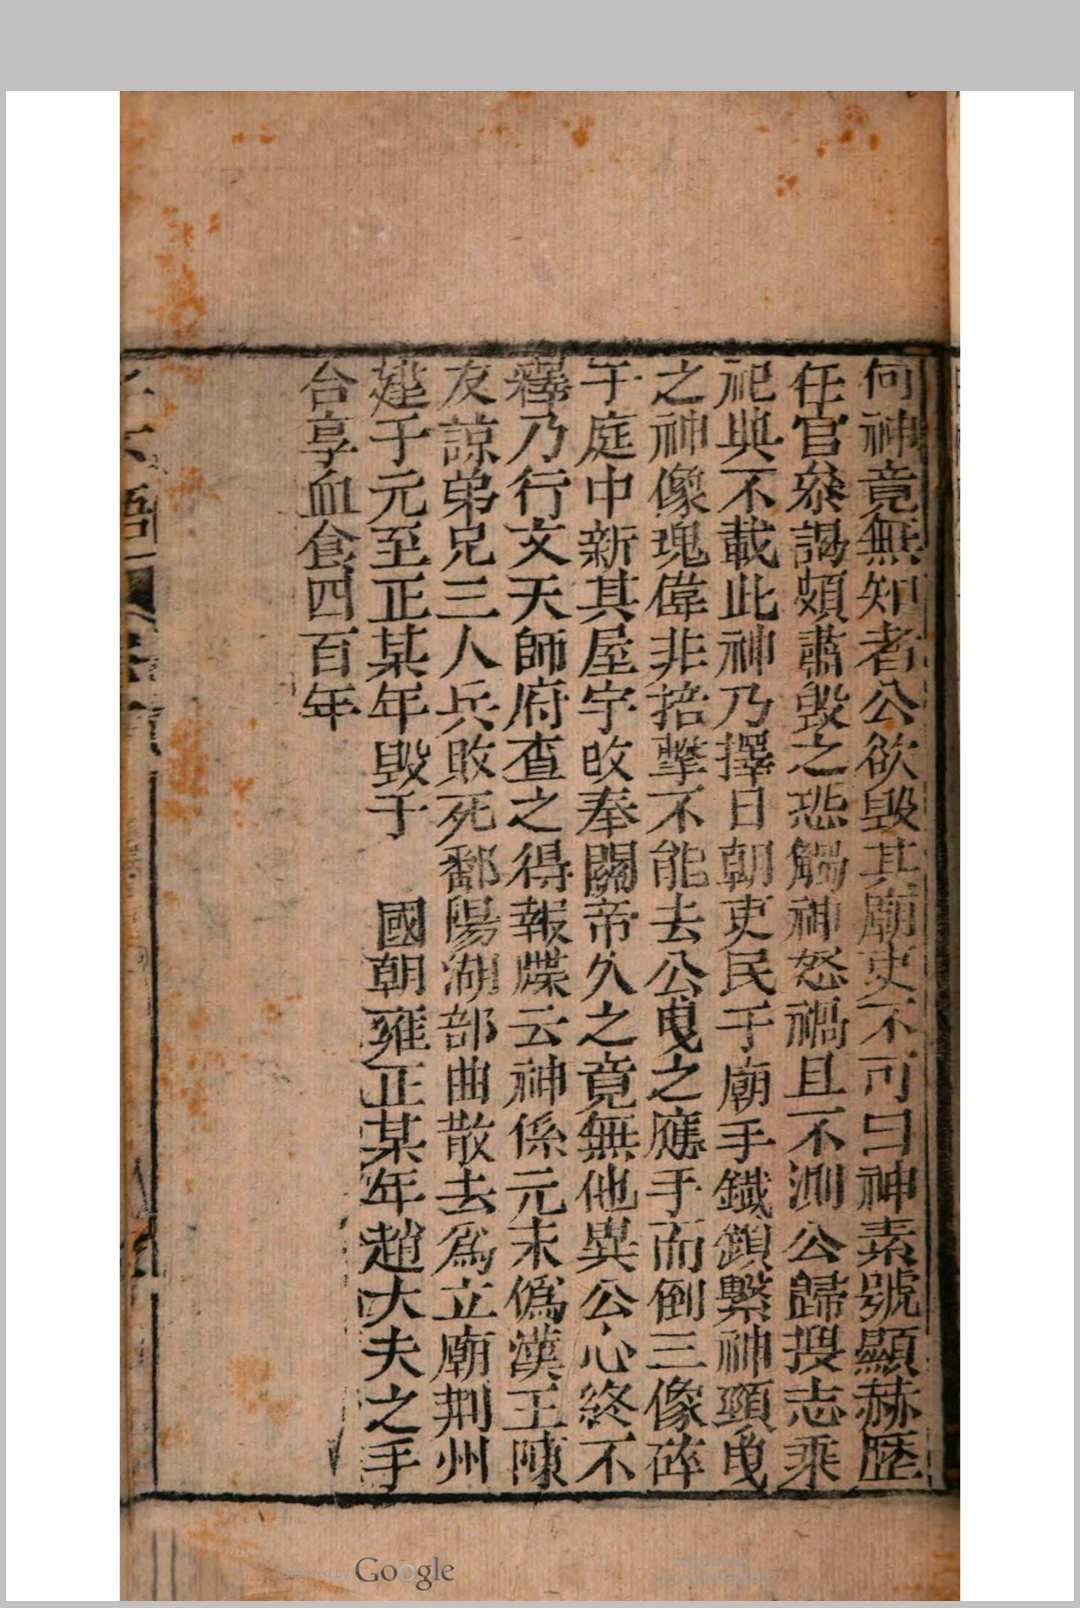 何神竟無知者公欲毀其廟吏不可曰神素號顯赫歷
任官叅謁頗肅毀之恐觸神怒禍且不測公歸搜志乘
祀典不載此神乃擇日朝吏民于廟手鐵鎖繫神頸曳
之神像瑰偉非掊擊不能去公曳之應手而倒三像碎
于庭中新其屋宇改奉關帝久之竟無他異公心終不
釋乃行文天師府查之得報牒云神係元末僞漢王陳
友諒弟兄三人兵敗死鄱陽湖部曲散去爲立廟荆州
建于元至正某年毀于　國朝雍正某年趙大夫之手
合享血食四百年
Google